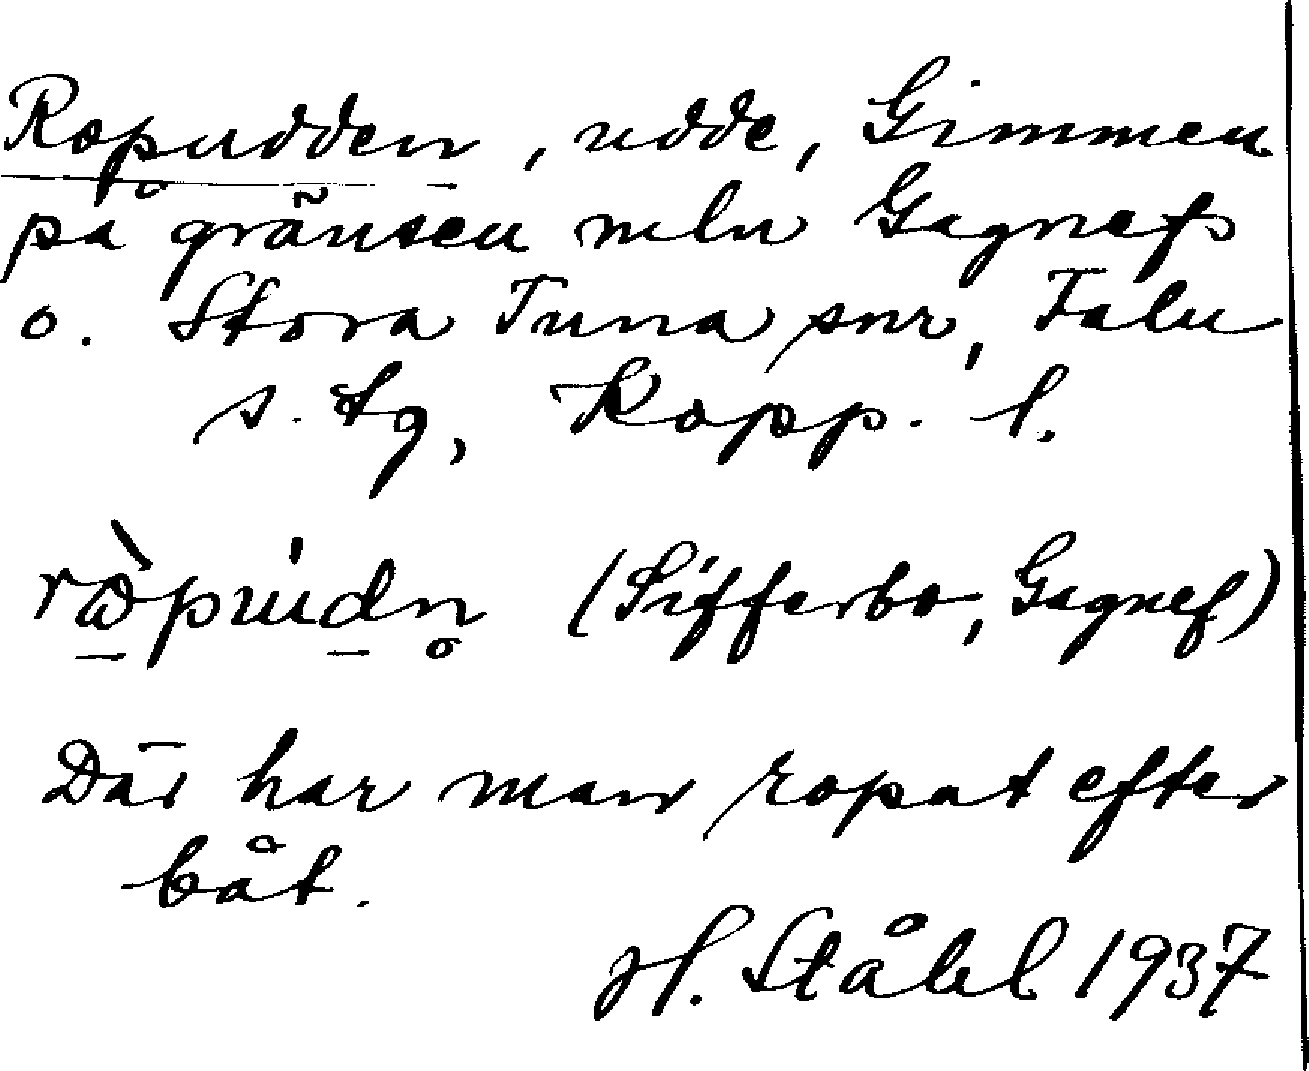 Ropudden, udde, Gimmen
på gränsen mln Gagnefs
o. Stora Tuna snr, Falu
s. tg, Kopp. l.
(Sifferbo, Gagnef)
Där har man ropat efter
båt.
H. Ståhl 1937